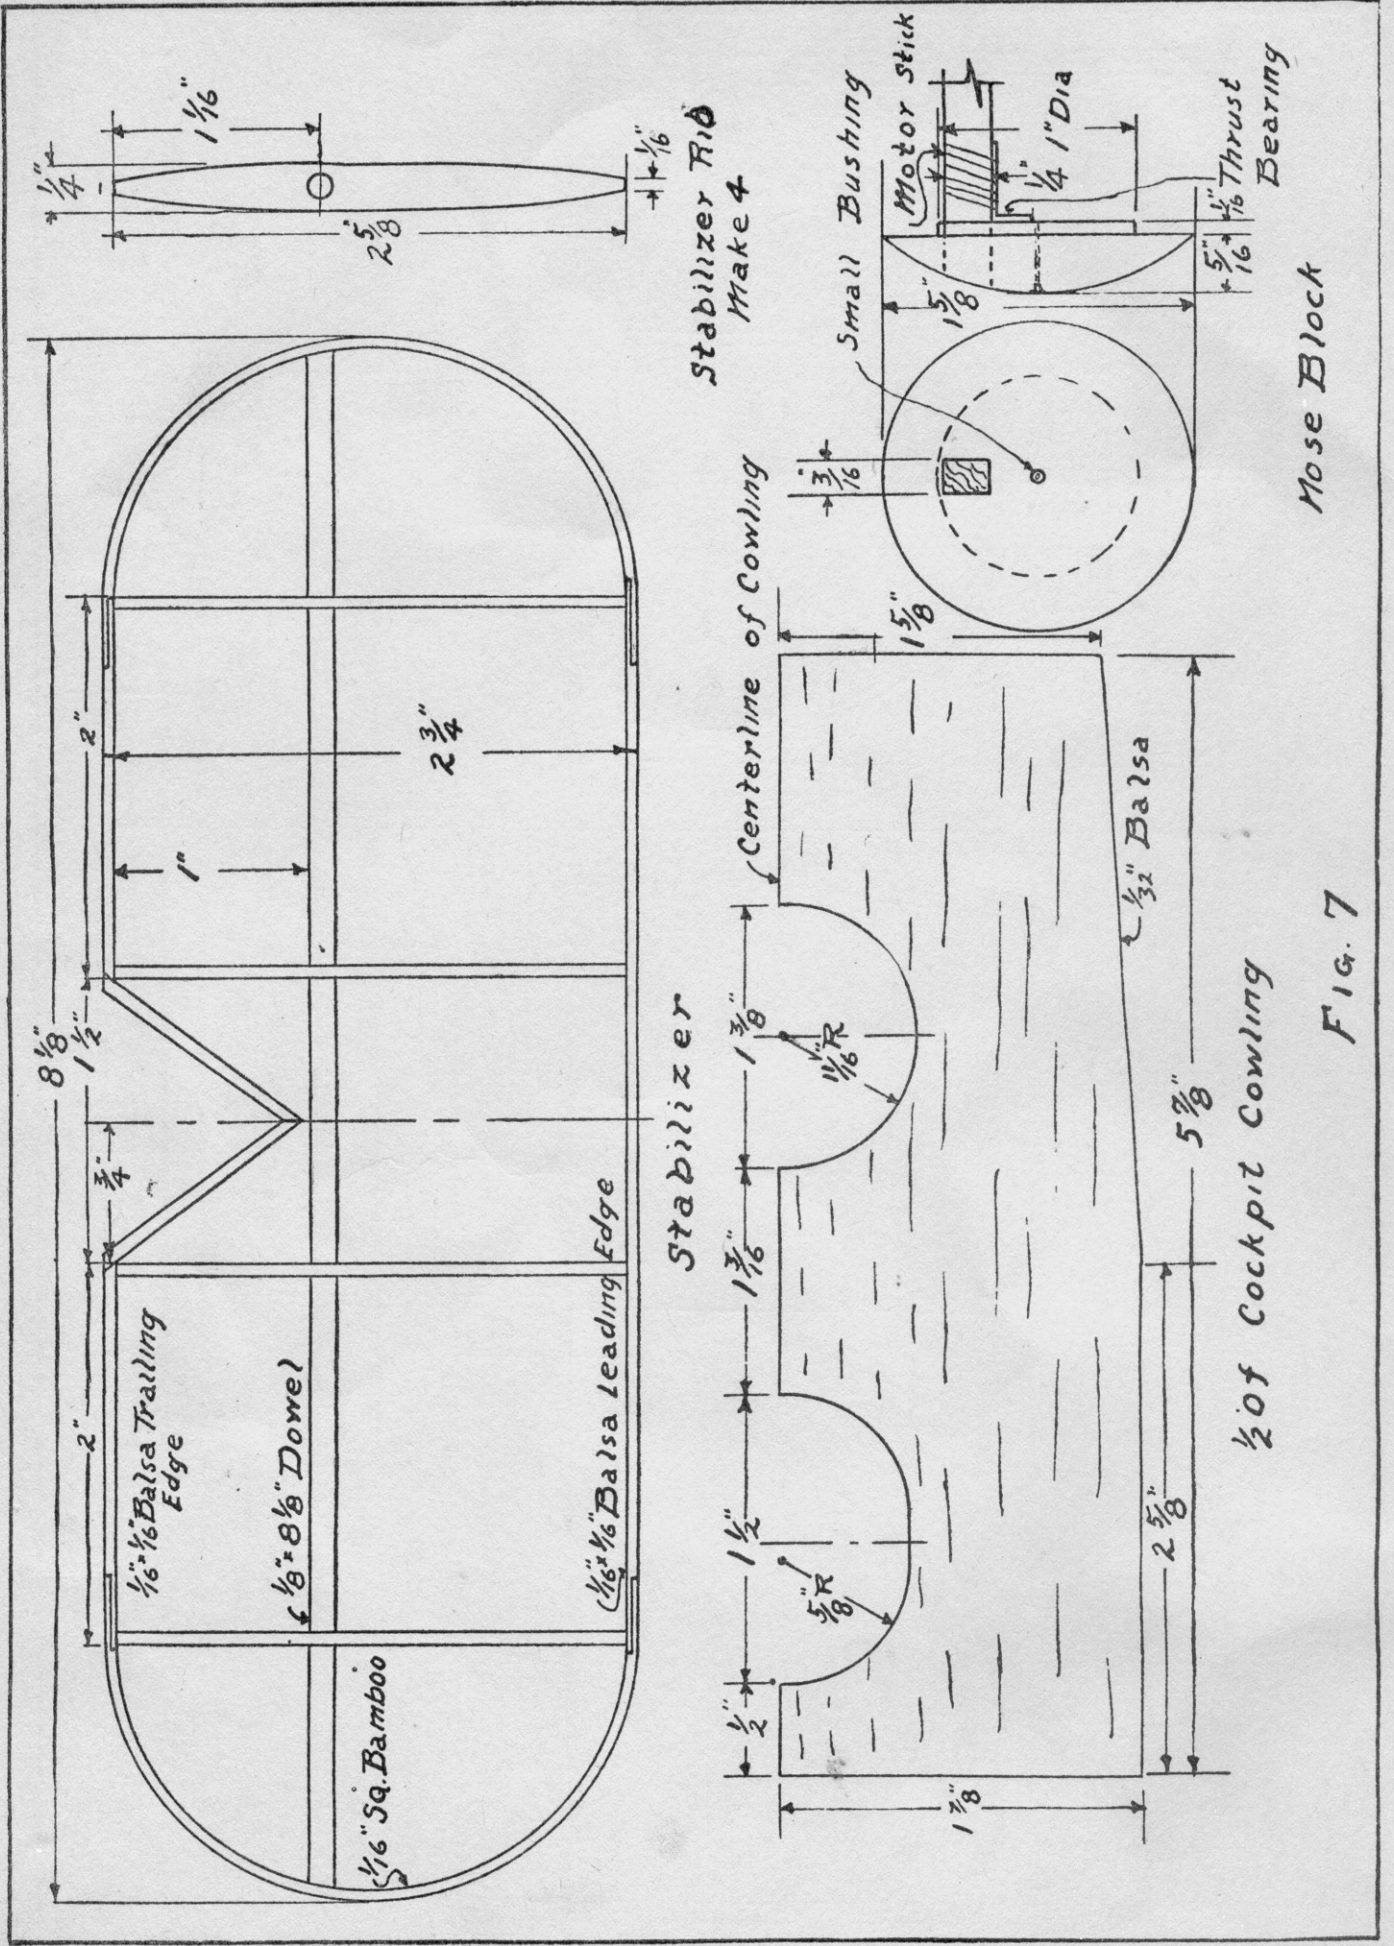 8 1/8"
2"
1 1/2"
2"
3/4
1"
2 3/4"
1/16"x1/16"Balsa Trailing
Edge
1/8"x8 1/8" Dowel
1/16"x1/16"Balsa Leading Edge
1/16" Sq. Bamboo
Stabilizer
1/4"
1 1/16"
2 5/8"
1/16"
Stabilizer Rib
Make 4
1/2"
1 1/2"
1 3/16"
1 3/8"
Centerline of Cowling
5/8" R
11/16" R
1 5/8"
1 7/8"
1/32" Balsa
2 5/8"
5 7/8"
1/2 of Cockpit Cowling
Small Bushing
Motor Stick
3/16"
1 5/8"
1/4
1" Dia
5/16"
1/16"
Thrust
Bearing
Nose Block
FIG. 7